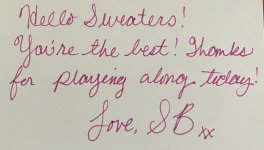 Hello Sweaters!
You're the best! Thanks
for playing along today!
Love, SB xx